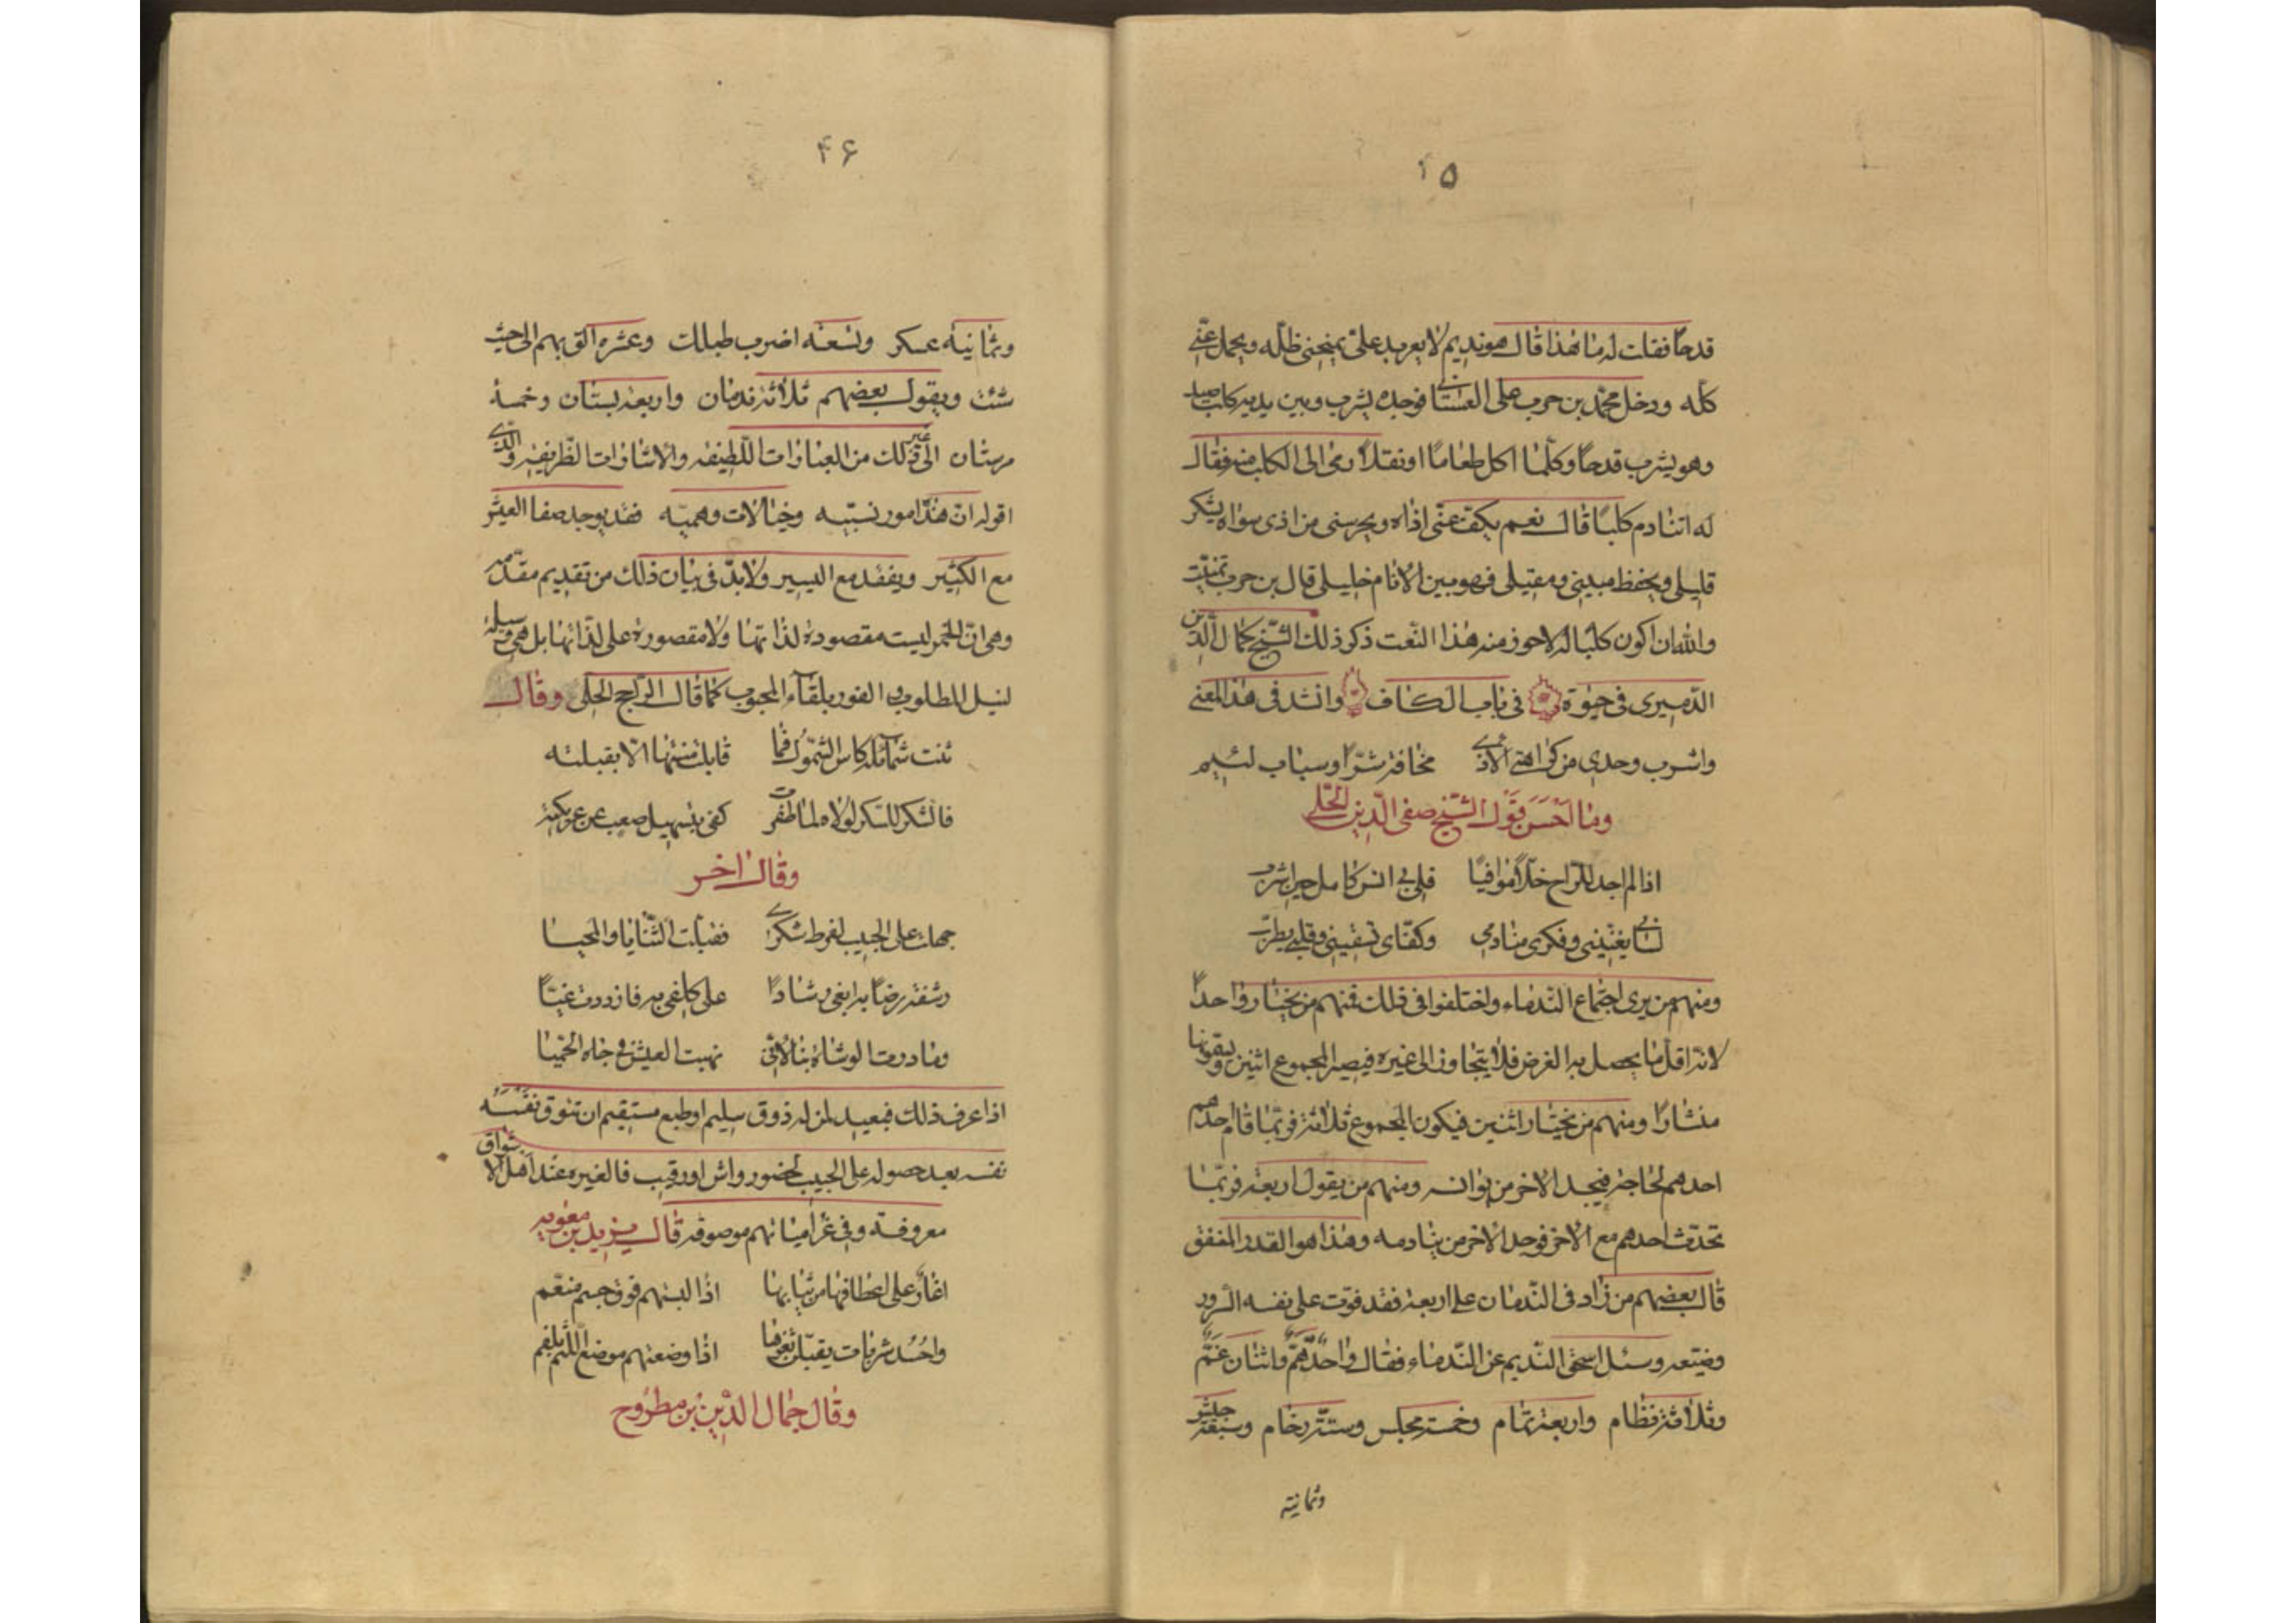 ۴۵
قدحا فقلت له ما هذا قال هو نديم لا يعربد علىّ يمنحنى ظلّه ويحمل عنّى
كلّه ودخل محمّد بن حرب على العتابى فوجده يشرب وبين يديه كلب
وهو يشرب قدحا وكلّما اكل طعاما او نقلا رمى الى الكلب منه فقال
له اتنادم كلبا قال نعم يكفّ عنّى اذاه ويحرسنى من اذى سواه يشكر
قليلى ويحفظ مبيتى ومقيلى فهو من بين الانام خليلى قال بن حرب فتمنّيت
والله ان اكون كلبا له لاحوز منه هذا النّعت ذكر ذلك الشّيخ كمال الدّين
الدّميرى فى حيوة فى باب الكاف وانشد فى هذا المعنى
واشرب وحدى من كراهتى الاذى مخافة شرّ او سباب لئيم
وما احسن قول الشّيخ صفى الدّين الحلّى
اذا لم اجد للرّاح خلّا موافيا فلى بى انس كامل حين اشرب
لسانى يغنّينى وفكرى منادمى وكفّاى تسقينى وقلبى يطرب
ومنهم من يرى اجتماع النّدماء واختلفوا فى ذلك فمنهم من يختار واحدا
لانّه اقلّ ما يحصل به الغرض فلا يتجاوز الى غيره فيصير المجموع اثنين ويقونها
منشارا ومنهم من يختار اثنين فيكون المجموع ثلاثة فربّما قام احدهم
احدهم لحاجة فيجد الاخر من يوانسه ومنهم من يقول اربعة فربّما
تحدّث احدهم مع الاخر فوجد الاخر من ينادمه وهذا هو القدر المتفق
قال بعضهم من زاد فى النّدمان على اربعة فقد فوّت على نفسه السّرور
وضيّعه وسئل اسحق النّديم عن النّدماء فقال واحد همّ واثنان غمّ
وثلاثة نظام واربعة تمام وخمسة مجلس وستّة زحام وسبعة جيش
وثمانية
۴۶
وثمانية عسكر وتسعة اضرب طبلك وعشرة الق بهم الى حيث
شئت ويقول بعضهم ثلاثة ندمان واربعة بستان وخمسة
مرستان الى غير ذلك من العبارات اللّطيفه والاشارات الظّريفة والّذى
اقوله انّ هذا امور نسبيّه وخيالات وهميّه فقد يوجد صفا العيش
مع الكثير ويفقد مع اليسير ولا بدّ فى بيان ذلك من تقديم مقدّمه
وهى انّ الخمر ليست مقصودة لذاتها ولا مقصورة على لذّاتها بل هى وسيلة
لنيل المطلوب الفوز بلقاء المحبوب كما قال الرّاجح الحلّى وقال
ثنت شمائله كاس الشّمول فما قابلت منتها الّا بقبلته
فالشكر للسّكر لولاه لما ظفرت كفى بتسهيل صعب عن عريكته
وقال اخر
جهلت على الحبيب لفرط سكرى فقبلت الثّنايا والمحيا
رشفت رضابه ابغى رشادا على كلفى به فازددت غيّا
وما درت الوشاة بنا لانّى نهبت العيش فى جاه الحميّا
اذا عرف ذلك فبعيد لمن له ذوق سليم او طبع مستقيم ان تتوق نفسه
نفسه بعد حصوله على الحبيب لحضور واش او رقيب فالغيره عند اهل الاشواق
معروفة وفى غراميّاتهم موصوفة قال يزيد بن معويه
اغار على اعطافها من ثيابها اذا لبستهم فوق جسم منعّم
واحسد شربات يقبّلن ثغرها اذا وضعتهم موضع اللّثم بالفم
وقال جمال الدّين بن مطروح